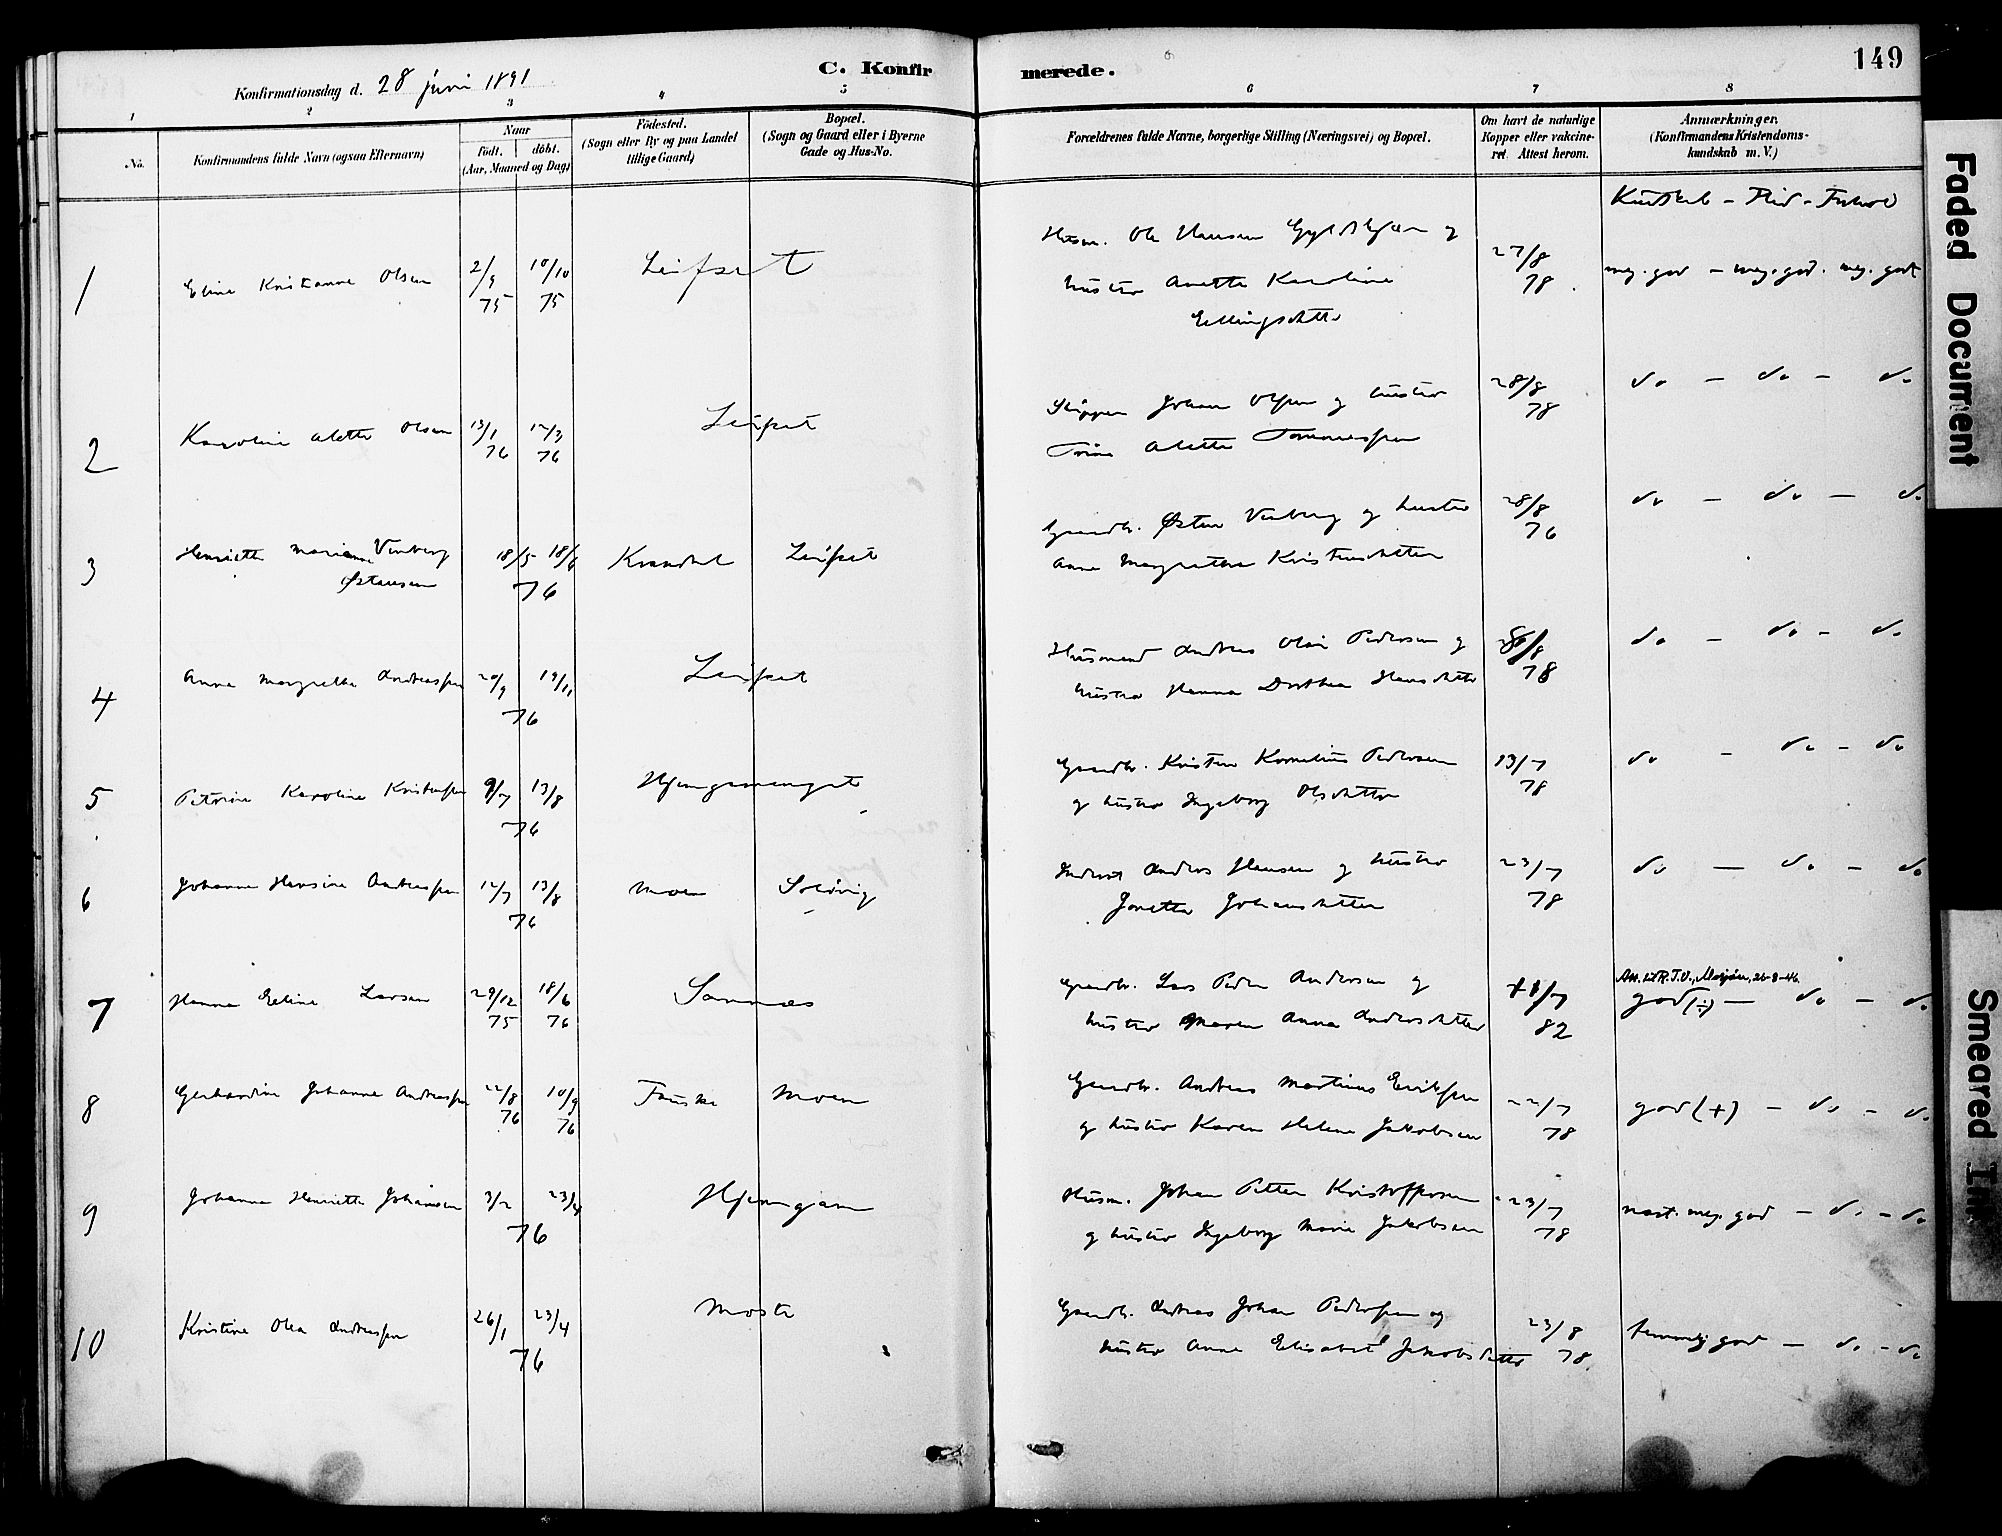 149
C. Konfirmerede.
Konfirmationsdag d. 28 juni 1891
1 2 3 4 5 6 7 8
No.
Konfirmandens fulde Navn (ogsaa Efternavn)
Naar
födt. döbt.
(Aar, Maaned og Dag)
Födested.
(Sogn eller By og paa Landet
tillige Gaard)
Bopæl.
(Sogn og Gaard eller i Byerne
Gade og Hus-No.
Forældrenes fulde Navne, borgerlige Stilling (Næringsvei) og Bopæl.
Om havt de naturlige
Kopper eller vakcine-
ret. Attest herom.
Anmærkninger.
(Konfirmandens Kristendoms-
kundskab m. V.)
Kundskab - Flid - Forhold
1 Eline Kristianne Olsen 2/9 75 10/10 75 Leifset
Husm. Ole Hansen og
hustru Anette Karoline
Ellingsdatter
27/8 78 meg. god - meg. god. meg. godt
2 Karoline Alette Olsen 13/1 76 12/3 76 Leifset
Skipper Johan Olsen og hustru
Trine Alette Tommessen
28/8 78 do - do - do
3 Henriette Marianne Venberg
Østensen
18/5 18/6 76 Kvandal Leifset
Gaardbr. Østen Venberg og hustru
Anne Margrethe Kristensdatter
28/8 76 do - do - do
4 Anna Margrethe Andreassen 20/9 19/11 76 Leifset
Husmand Andreas Olai Pedersen og
hustru Hanna Dorthea Hansdatter
/8 78 do - do - do
5 Petrine Karoline Kristensen 9/7 13/8 76
Gaardbr. Kristen Kornelius Pedersen
og hustru Ingeborg Olsdatter
13/7 78 do - do - do
6 Johanne Hansine Andreassen 12/7 13/8 76 Moen Solövig
Inderst Andreas Hansen og hustru
Jonetta Johansdatter
23/7 78 do - do - do
7 Hanna Eline Larsen 29/12 75 18/6 76 Sannæs
Gaardbr. Lars Peder Andersen og
hustru Maren Anna Andersdatter
11/7 82
Att. t. R.T.V., Mosjøen, 26-8-46
god (÷) - do - do
8 Gerhardine Johanna Andreassen 22/8 76 10/9 76 Fauske Moen
Gaardbr. Andreas Martinus Eriksen
og hustru Karen Helene Jakobsen
22/7 78 god (+) - do - do
9 Johanna Henriette Johansen 3/2 23/4 76 Hjemgam
Husm. Johan Petter Kristoffersen
og hustru Ingeborg Marie Jakobsen
23/7 78 næst. meg. god - do - do
10 Kristine Olea Andreassen 26/1 23/4 76 Moste
Gaardbr. Andreas Johan Pedersen og
hustru Anne Elisabet Jakobsdatter
23/8 78. temmelig god - do - do
Faded Document
Smeared Ink